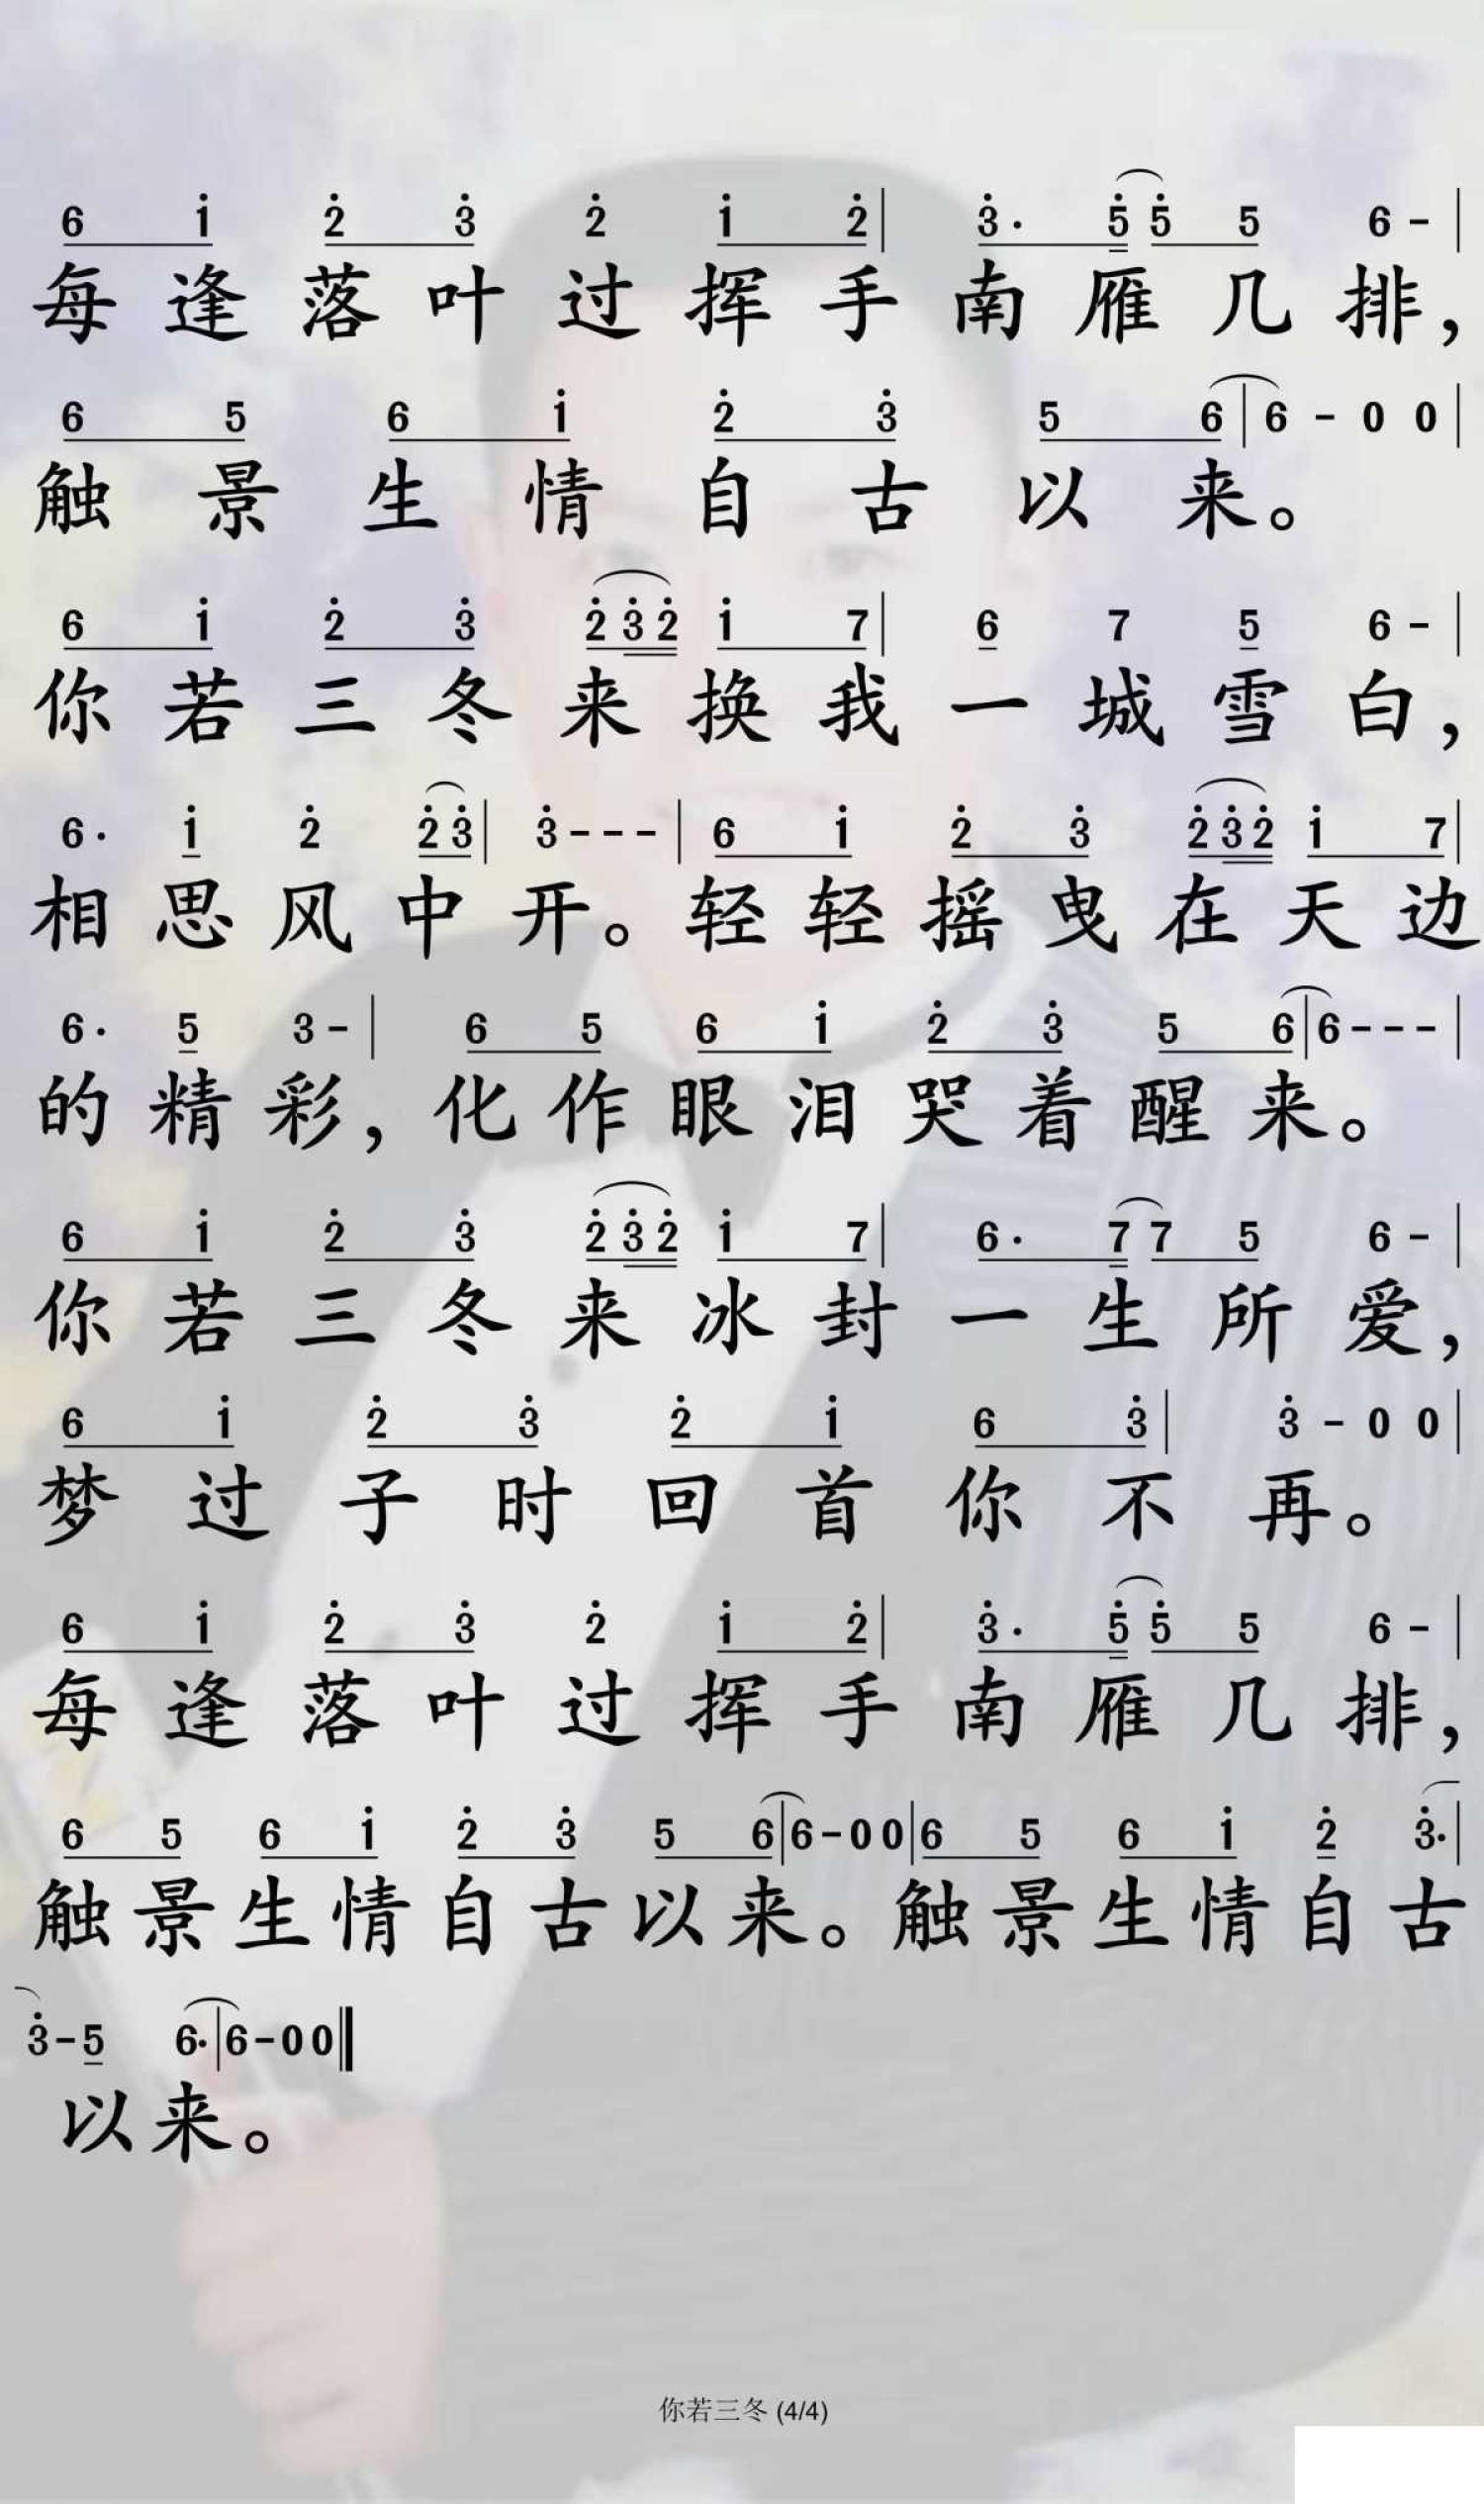 6 1̇ 2̇ 3̇ 2̇ 1̇ 2̇ | 3̇· 5̇ 5̇ 5 6 - |
每逢落叶过挥手南雁几排，
6 5 6 1̇ 2̇ 3̇ 5 6 | 6 - 0 0 |
触景生情自古以来。
6 1̇ 2̇ 3̇ 2̇ 3̇ 2̇ 1̇ 7 | 6 7 5 6 - |
你若三冬来换我一城雪白，
6· 1̇ 2̇ 2̇ 3̇ | 3̇ - - - | 6 1̇ 2̇ 3̇ 2̇ 3̇ 2̇ 1̇ 7 |
相思风中开。轻轻摇曳在天边
6· 5 3 - | 6 5 6 1̇ 2̇ 3̇ 5 6 | 6 - - - |
的精彩，化作眼泪哭着醒来。
6 1̇ 2̇ 3̇ 2̇ 3̇ 2̇ 1̇ 7 | 6· 7 7 5 6 - |
你若三冬来冰封一生所爱，
6 1̇ 2̇ 3̇ 2̇ 1̇ 6 3̇ | 3̇ - 0 0 |
梦过子时回首你不再。
6 1̇ 2̇ 3̇ 2̇ 1̇ 2̇ | 3̇· 5̇ 5̇ 5 6 - |
每逢落叶过挥手南雁几排，
6 5 6 1̇ 2̇ 3̇ 5 6 | 6 - 0 0 | 6 5 6 1̇ 2̇ 3̇· |
触景生情自古以来。触景生情自古
3̇ - 5 6· | 6 - 0 0 ‖
以来。
你若三冬 (4/4)